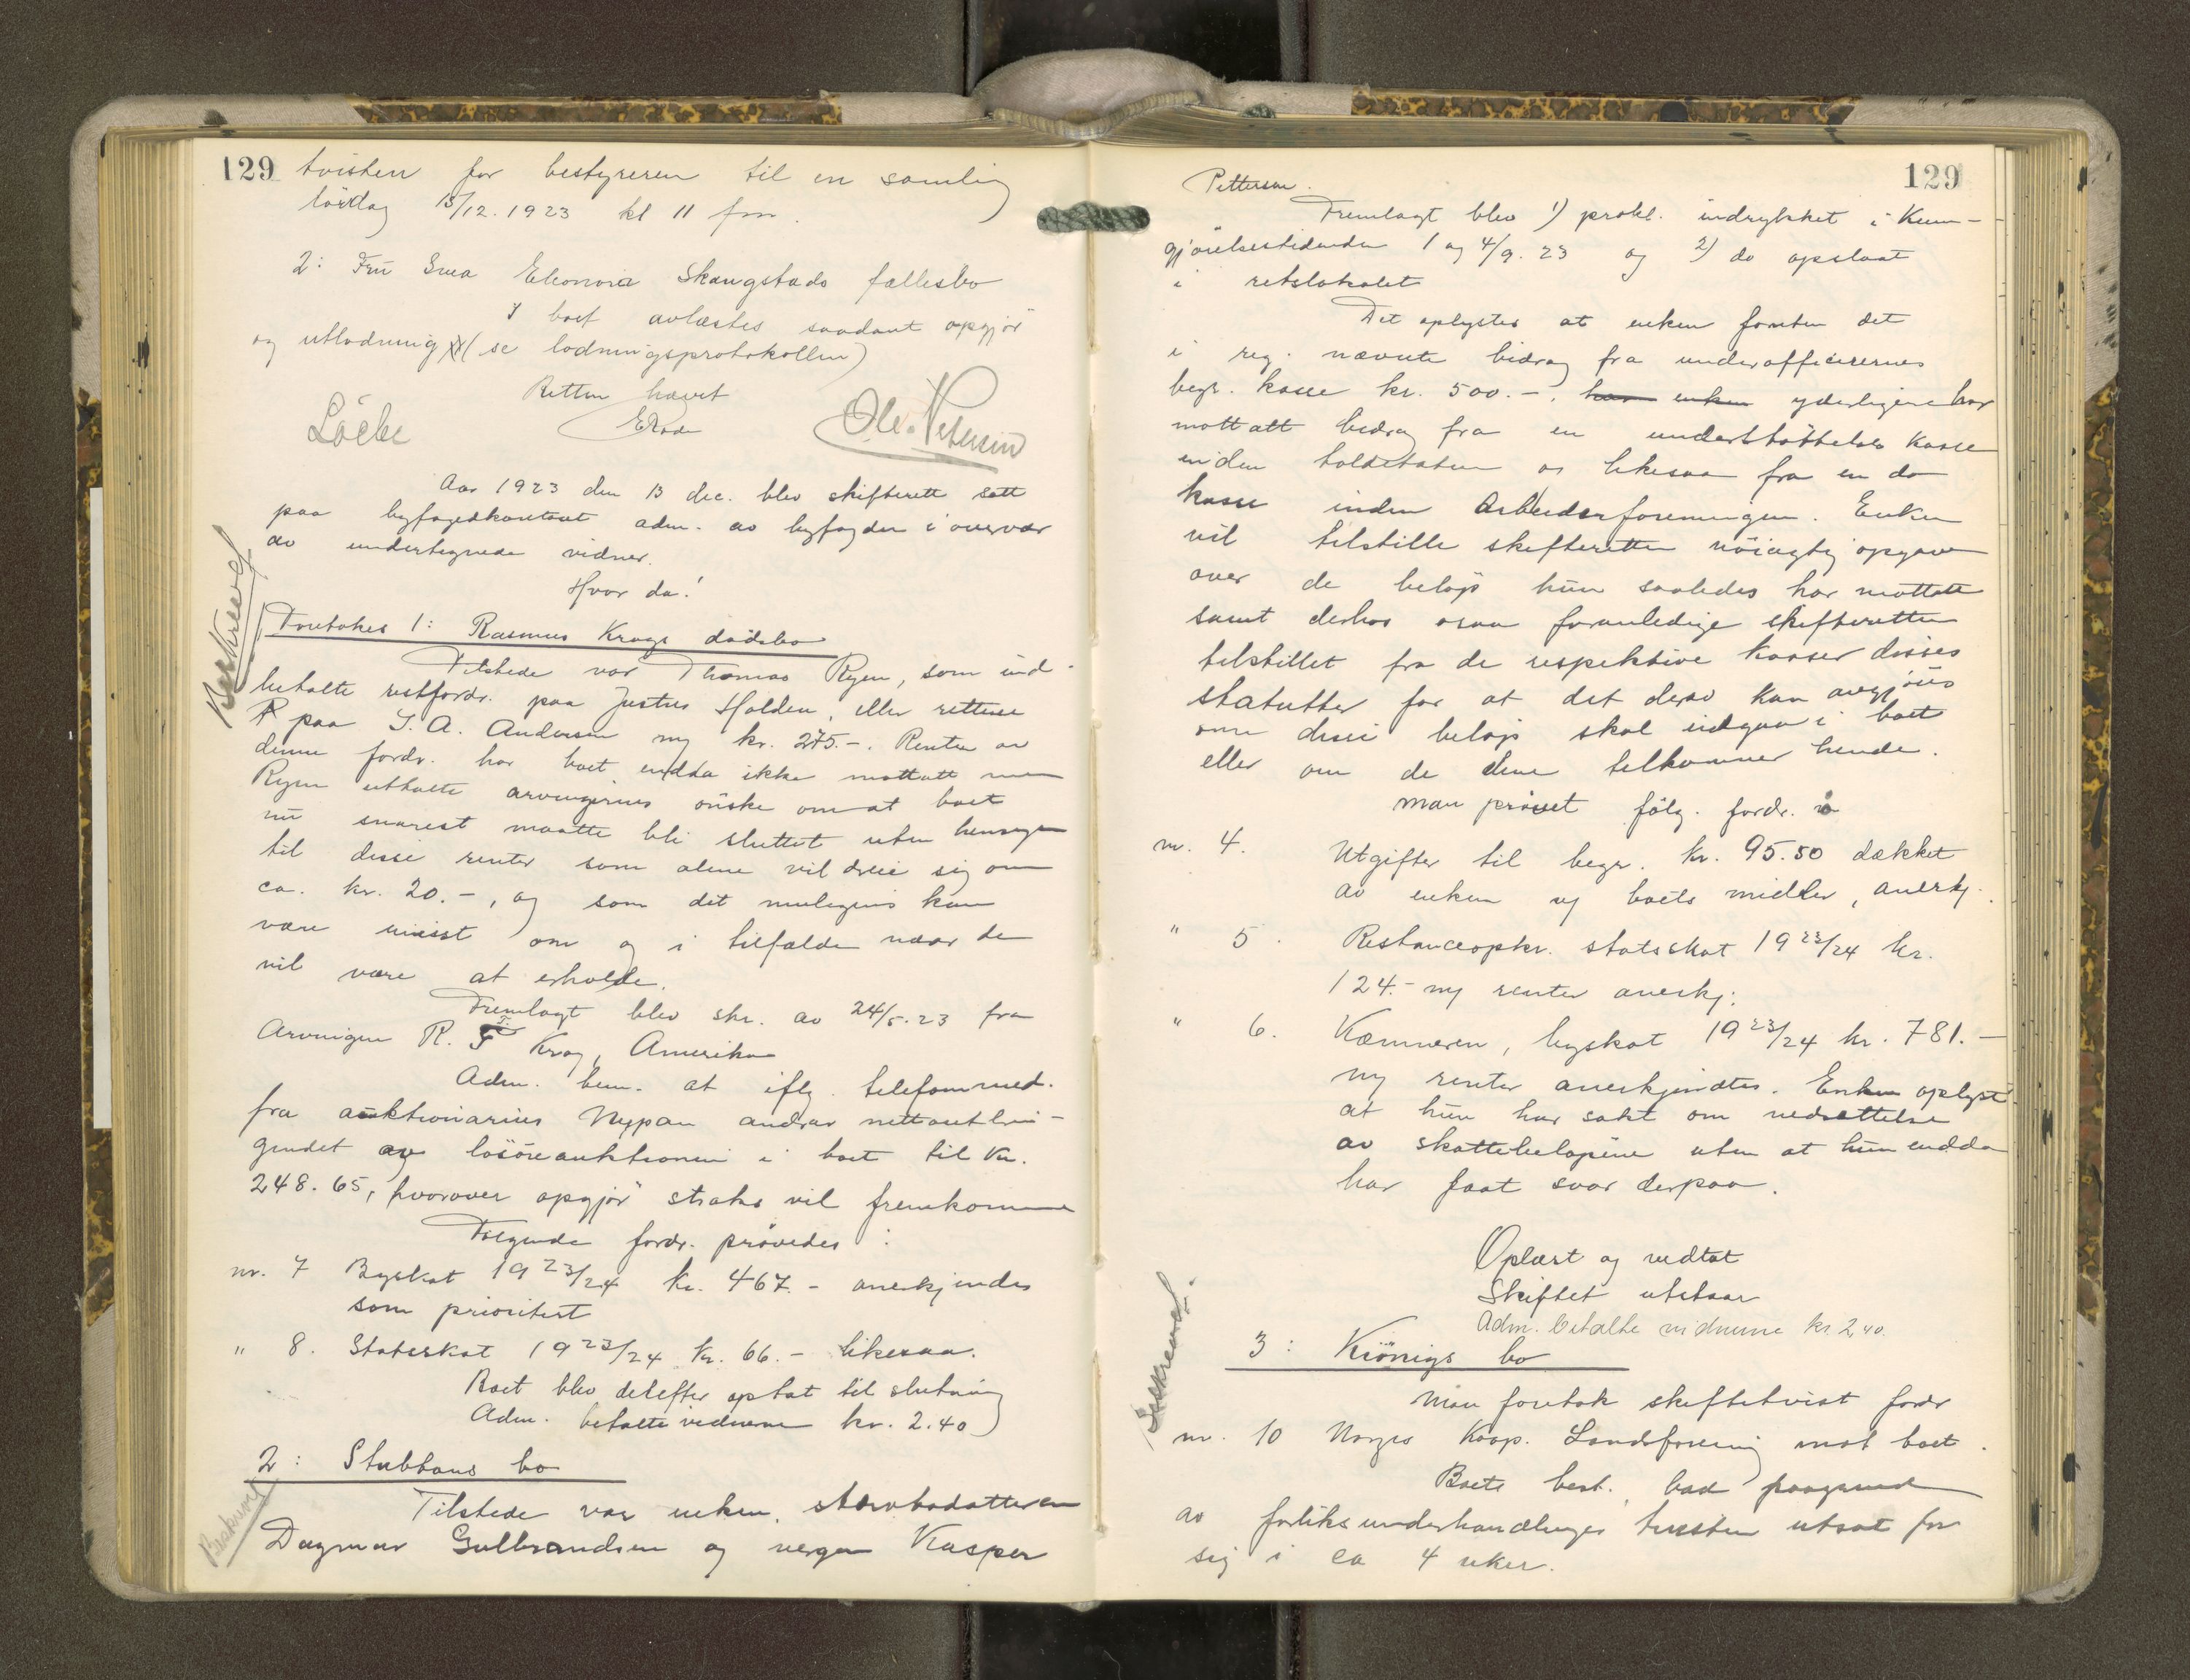 129 tvisten for bestyreren til en samling
lördag 15/12. 1923 kl 11 fm.
2: Fru Eleonora Skaugstads fællesbo
I boet avlæstes saadant opgjör
og utlodning (se lodningsprotokollen)
Retten hævet
Löcke ERode Ole Petersen
Aar 1923 den 13 dec. blev skifterett satt
paa byfogedkontoret adm. av byfogden i overvær
av undertegnede vidner.
Hvor da!
Beskrevet
Foretokes 1: Rasmus Krogs dödsbo
Tilstede var Thomas Ryen, som ind-
betalte restfordr. paa Justus Holden, eller rettere
paa I. A. Andersen kr. 275.-. Renten av
denne fordr. har boet endda ikke mottatt men
Ryen uttalte arvingernes önske om at boet
nu snarest maatte bli sluttet uten hensyn
til disse renter som alene vil dreie sig om
ca. kr. 20.-, og som det muligens kan
være uvisst om og i tilfælde naar de
vil være at erholde.
Fremlagt blev skr. av 24/5. 23 fra
Arvingen R. F. Krog, Amerika
Adm. bem. at iflg. telefonmed.
fra auktionarius Nypan andrar nettoutbrin-
gendet av lösöreauktionen i boet til kr.
248.65, hvorover opgjör straks vil fremkomme
Følgende fordr. prövedes:
nr. 7 Byskat 1923/24 kr. 467.- anerkjendes
som prioritert
" 8. Statsskat 1923/24 kr. 66.- likesaa.
Boet blev derefter optat til slutning
Adm. betalte vidnerne kr. 2.40
2: Stubbans bo
Beskrevet
Tilstede var enken, stervbodatteren
Dagmar Gulbrandsen og vergen Kasper
129
Pettersen.
Fremlagt blev 1) prokl. indrykket i Kun-
gjörelsestidende 1 og 4/9. 23 og 2) do opslaat
i retslokalet
Det oplystes at enken foruten det
i reg. nævnte bidrag fra underofficerernes
begr. kasse kr. 500.-, har enken yderligere har
mottatt bidrag fra en understöttelses kasse
inden toldetaten og likesaa fra en do
kasse inden Arbeiderforeningen. Enken
vil tilstille skifteretten nöiagtig opgave
over de belöp hun saaledes har mottatt
samt derhos foranledige skifteretten
tilstillet fra de respektive kasser disses
statutter for at det derav kan avgjöres
om disse belöp skal indgaa i boet
eller om de alene tilkommer hende.
Man prövet fölg. fordr.
nr. 4. Utgifter til begr. kr. 95.50 dækket
av enken boets midler, anerkj.
" 5. Restanceopkr. statsskat 1923/24 kr.
124.- renter anerkj.
" 6. Kæmneren, byskat 1923/24 kr. 781.-
renter anerkjendtes. Enken oplyste
at hun har sökt om nedsættelse
av skattebelöpene uten at hun endda
har faat svar derpaa.
Oplæst og vedtat
Skiftet utstaar
Adm. betalte vidnerne kr. 2,40.
Beskrevet.
3: Krönigs bo
Man foretok skiftetvist fordr
nr. 10 Norges Koop. Landsforening mot boet.
Boets best. bad paagrund
av forliksunderhandlinger tvisten utsat for
sig i ca 4 uker.